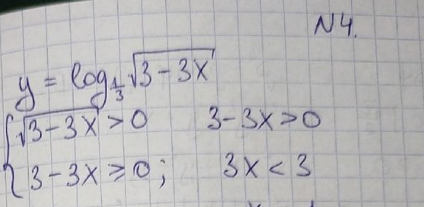 N4.
y = log_{1/3} √(3-3x)
{ √(3-3x) > 0    3-3x > 0
3-3x ≥ 0;    3x < 3